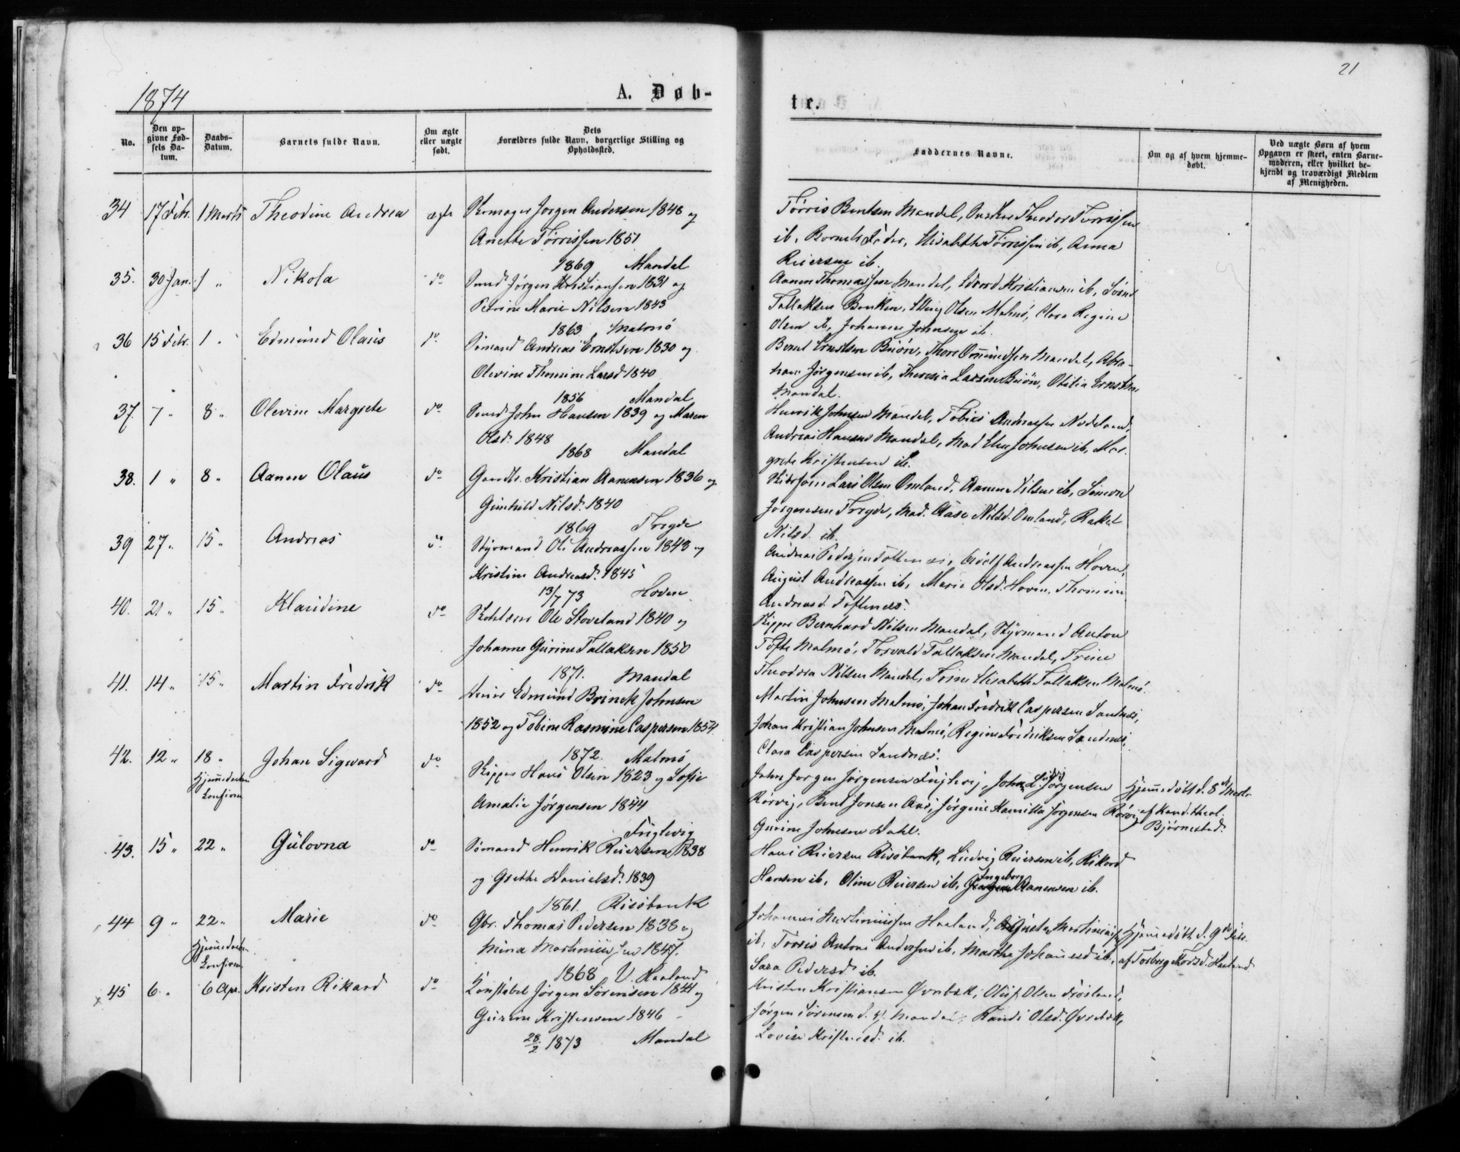 21
1874
A. Døb-
te.
No.
Den op-
givne Fød-
sels Da-
tum.
Daabs-
Datum.
Barnets fulde Navn.
Om ægte
eller uægte
født.
Dets
Forældres fulde Navn, borgerlige Stilling og
Opholdssted.
Faddernes Navne.
Om og af hvem hjemme-
døbt.
Ved uægte Børn af hvem
Opgaven er skeet, enten Barne-
moderen, eller hvilket be-
kjendt og troværdigt Medlem
af Menigheden.
34 17 Febr. 1 Marts Theodine Andrea ægte Jørgen Andersen 1848 og
Anette Tørrissen 1851
1869 Mandal
Tørris Bentsen Mandal, Theodor Tørrissen
ib, Barnets Fader, Elisabeth Tørrissen ib, Anna
Reiersen ib.
35. 30 Jan. 1 " Nikola do Smed Jørgen Kristiansen 1831 og
Petrine Marie Nilsen 1843
1863 Malmø
Aanen Thomassen Mandal, Edvard Kristiansen ib,
Tallaksen Olsen Malmø, Clara Regine
Olsen ib, Johanne Johnsen ib.
36 15 Febr. 1 " Edmund Olaus do Sømand Andreas Erntsen 1830 og
Olevine Thomine Larsd. 1840
1856 Mandal
Thore Omundsen Mandal, Abra-
ham Jørgensen ib, Theresia Larsen
Mandal.
37. 7 " 8 " Olevine Margrete do Smed John Hansen 1839 og Maren
Olsd. 1848
1868 Mandal
Henrik Johnsen Mandal, Tobias Andreassen Nodeland,
Andreas Hansen Mandal, Mad. Johnsen ib, Mar-
grete Kristensen ib.
38. 1 " 8 " Aanen Olaus do Gaardbr. Kristian Aanensen 1836 og
Gunhild Nilsd. 1840
1869
Lars Olsen Omland, Aanen Nilsen ib, Simon
Jørgensen, Mad. Aase Nilsd. Omland, Rakel
Nilsd. ib.
39 27 " 15 " Andreas do Styrmand Ole Andreassen 1843 og
Kristine Andreasd. 1845
13/7 73 Hoven
Andreas Pedersen, Adolf Andreassen Hoven,
August Andreassen ib, Marie Olsd. Hoven, Thomine
Andreasd.
40. 21 " 15 " Klaudine do Ole Stoveland 1840 og
Johanne Gurine Tallaksen 1850
1871. Mandal
Skipper Bernhard Nilsen Mandal, Styrmand Anton
Tofte Malmø, Torvald Tallaksen Mandal, Trine
Theodora Nilsen Mandal, Trine Elisabeth Tallaksen Malmø.
41. 14 " 15 " Martin Fredrik do Edmund Brinck Johnsen
1852 og Tobine Rasmine Caspersen 1854
1872. Malmø
Martin Johnsen Malmø, Johan Fredrik Caspersen Sandnes,
Johan Kristian Johnsen Malmø, Regine Fredriksen Sandnes,
Clara Caspersen Sandnes.
42. 12 " 18 " Johan Sigvard do Skipper Hans Olsen 1823 og Sofie
Hjemmedøbt
Amalie Jørgensen 1844
Fuglevig
John Jørgen Jørgensen Fuglevig, Jørgensen
Rørvig, Bent Jonsen Aas, Jørgine Hamilla Jørgensen Rørvig,
Gurine Johnsen Dahl.
Hjemmedøbt d. 8de Marts
af Kand. theol.
Bjørnestad.
43. 15 " 22 " Gulovna do Sømand Henrik Reiersen 1838
og Grethe Danielsd. 1839
1861 Risøbank
Hans Reiersen Risøbank, Ludvig Reiersen ib, Rikard
Hansen ib, Oline Reiersen ib, Ingeborg Aanensen ib.
44 9 " 22 " Marie do Gbr. Thomas Pedersen 1838 og
Hjemmedøbt
Mina Martiniussen 1847.
1868 V. Haaland
Johannes Martiniussen Haaland, August Martiniussen
ib, Tørris Anton Andersen ib, Martha Johannesd. ib,
Sara Pedersd. ib.
Hjemmedøbt d. 9de Febr.
af Haaland.
45 6 " 6 Apr. Kristen Rikard do Konstabel Jørgen Sørensen 1844 og
Gurine Kristensen 1846
28/2 1873 Mandal
Kristen Kristiansen Øvrebæk, Oluf Olsen Frøsland,
Jørgen Sørensen Mandal, Randi Olsd. Øvrebæk,
Lovise Kristensd. ib.